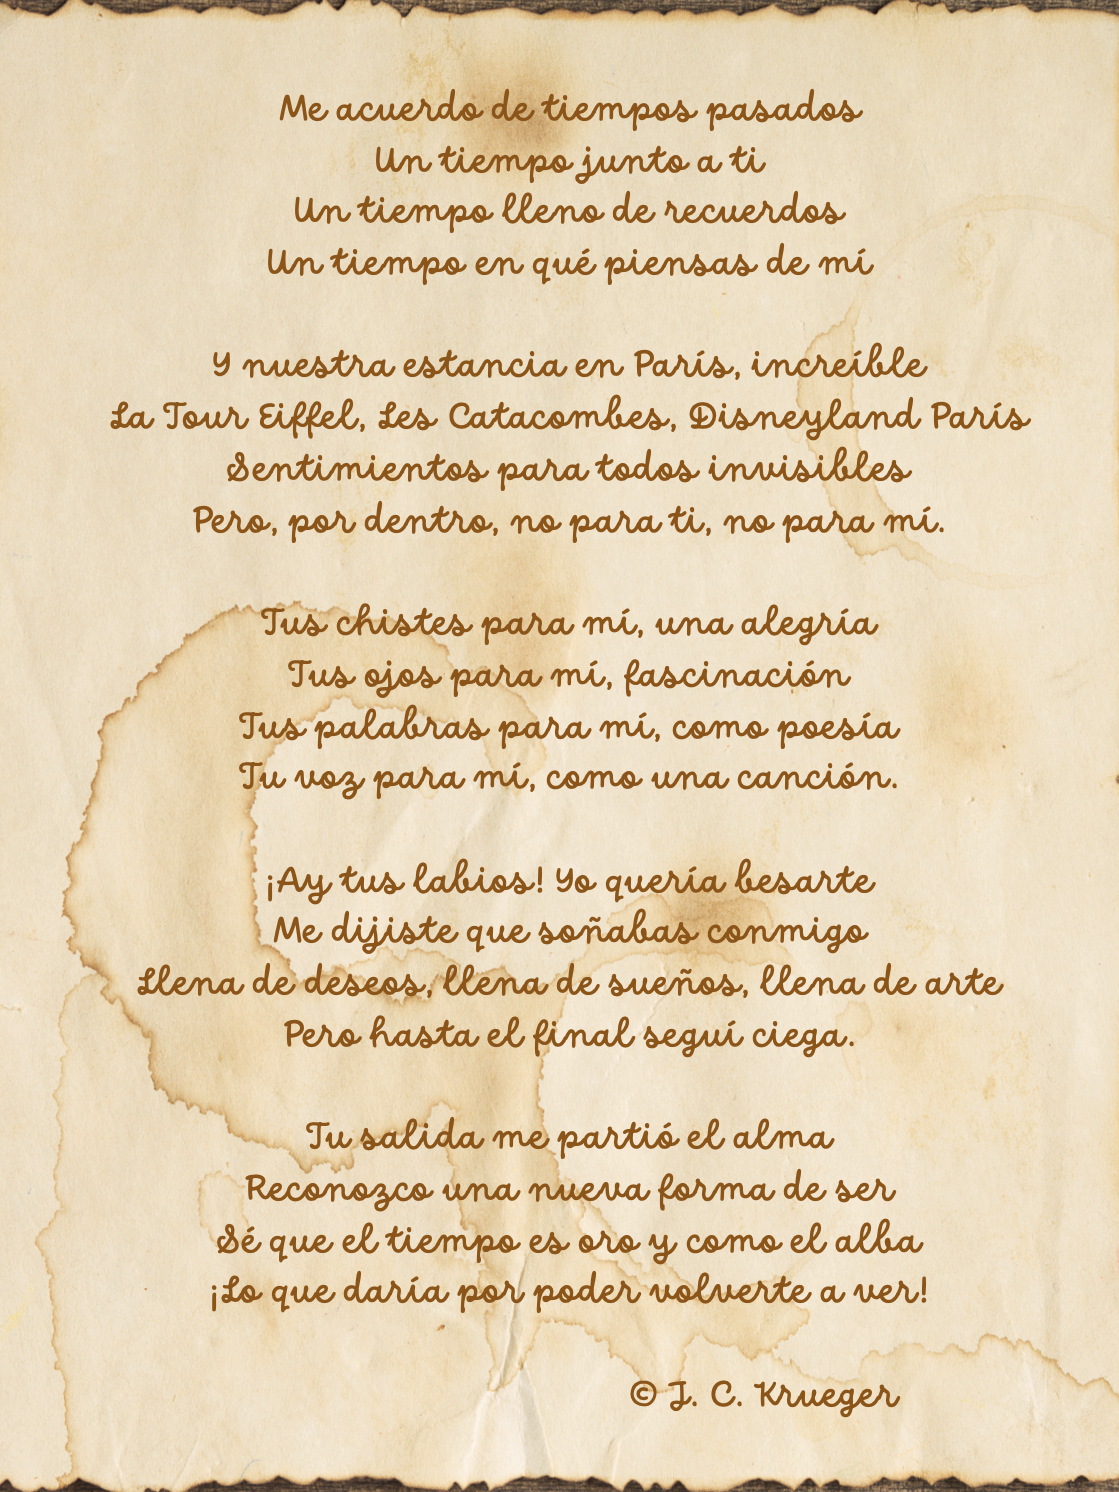 Me acuerdo de tiempos pasados
Un tiempo junto a ti
Un tiempo lleno de recuerdos
Un tiempo en qué piensas de mí
Y nuestra estancia en París, increíble
La Tour Eiffel, Les Catacombes, Disneyland París
Sentimientos para todos invisibles
Pero, por dentro, no para ti, no para mí.
Tus chistes para mí, una alegría
Tus ojos para mí, fascinación
Tus palabras para mí, como poesía
Tu voz para mí, como una canción.
¡Ay tus labios! Yo quería besarte
Me dijiste que soñabas conmigo
Llena de deseos, llena de sueños, llena de arte
Pero hasta el final seguí ciega.
Tu salida me partió el alma
Reconozco una nueva forma de ser
Sé que el tiempo es oro y como el alba
¡Lo que daría por poder volverte a ver!
© J. C. Krueger